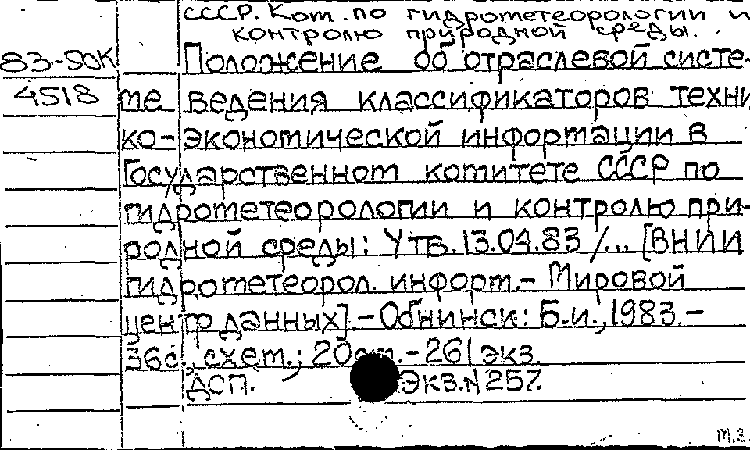 СССР. Ком. по гидрометеорологии и
контролю природной среды.
83-ДСК Положение об отраслевой систе-
4518 ме ведения классификаторов техни
ко-экономической информации в
Государственном комитете СССР по
гидрометеорологии и контролю при-
родной среды: Утв. 13.04.83 /... [ВНИИ
гидрометеорол. информ.- Мировой
центр данных].-Обнинск: Б.и., 1983.-
36с., схем.; 20см.-261экз.
ДСП. Экз.N257.